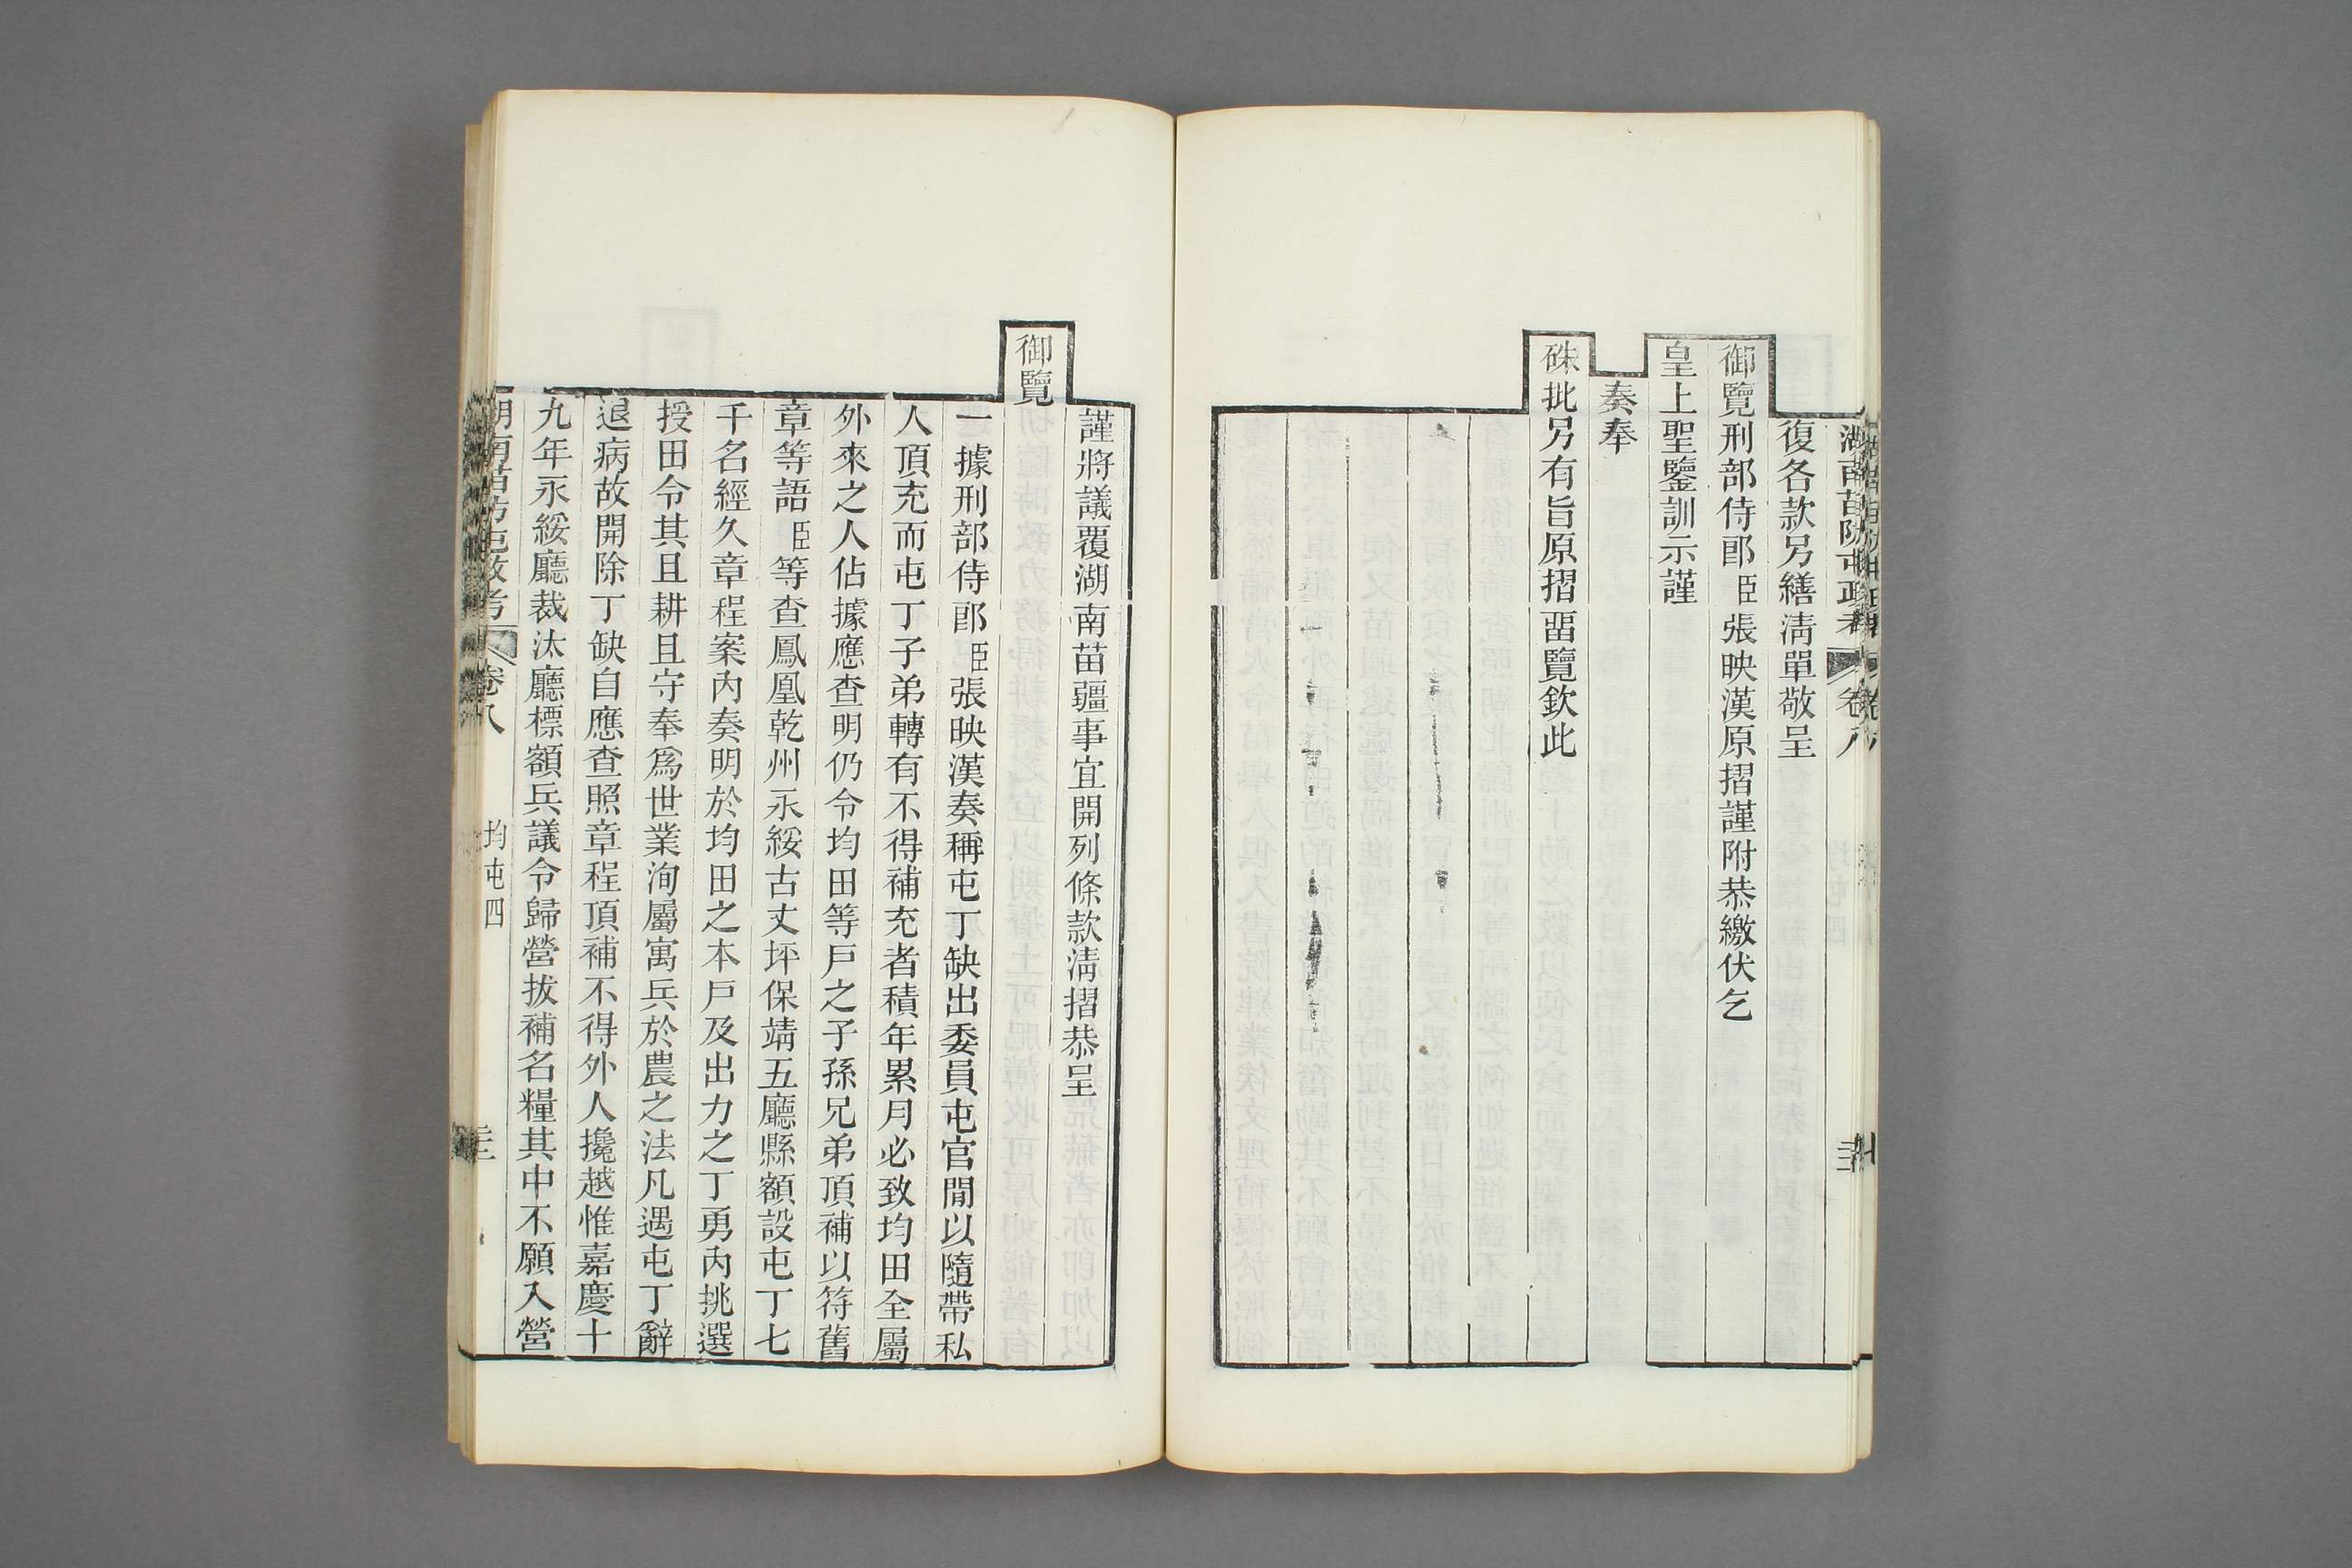 湖南苗防屯政考 卷八
復各款另繕清單敬呈
御覽刑部侍郎臣張映漢原摺謹附恭繳伏乞
皇上聖鑒訓示謹
奏奉
硃批另有旨原摺畱覽欽此
謹將議覆湖南苗疆事宜開列條款清摺恭呈
御覽
一據刑部侍郎臣張映漢奏稱屯丁缺出委員屯官閒以隨帶私
人頂充而屯丁子弟轉有不得補充者積年累月必致均田全屬
外來之人佔據應查明仍令均田等戶之子孫兄弟頂補以符舊
章等語臣等查鳳凰乾州永綏古丈坪保靖五廳縣額設屯丁七
千名經久章程案內奏明於均田之本戶及出力之丁勇內挑選
授田令其且耕且守奉爲世業洵屬寓兵於農之法凡遇屯丁辭
退病故開除丁缺自應查照章程頂補不得外人攙越惟嘉慶十
九年永綏廳裁汰廳標額兵議令歸營拔補名糧其中不願入營
湖南苗防屯政考 卷八 均屯四